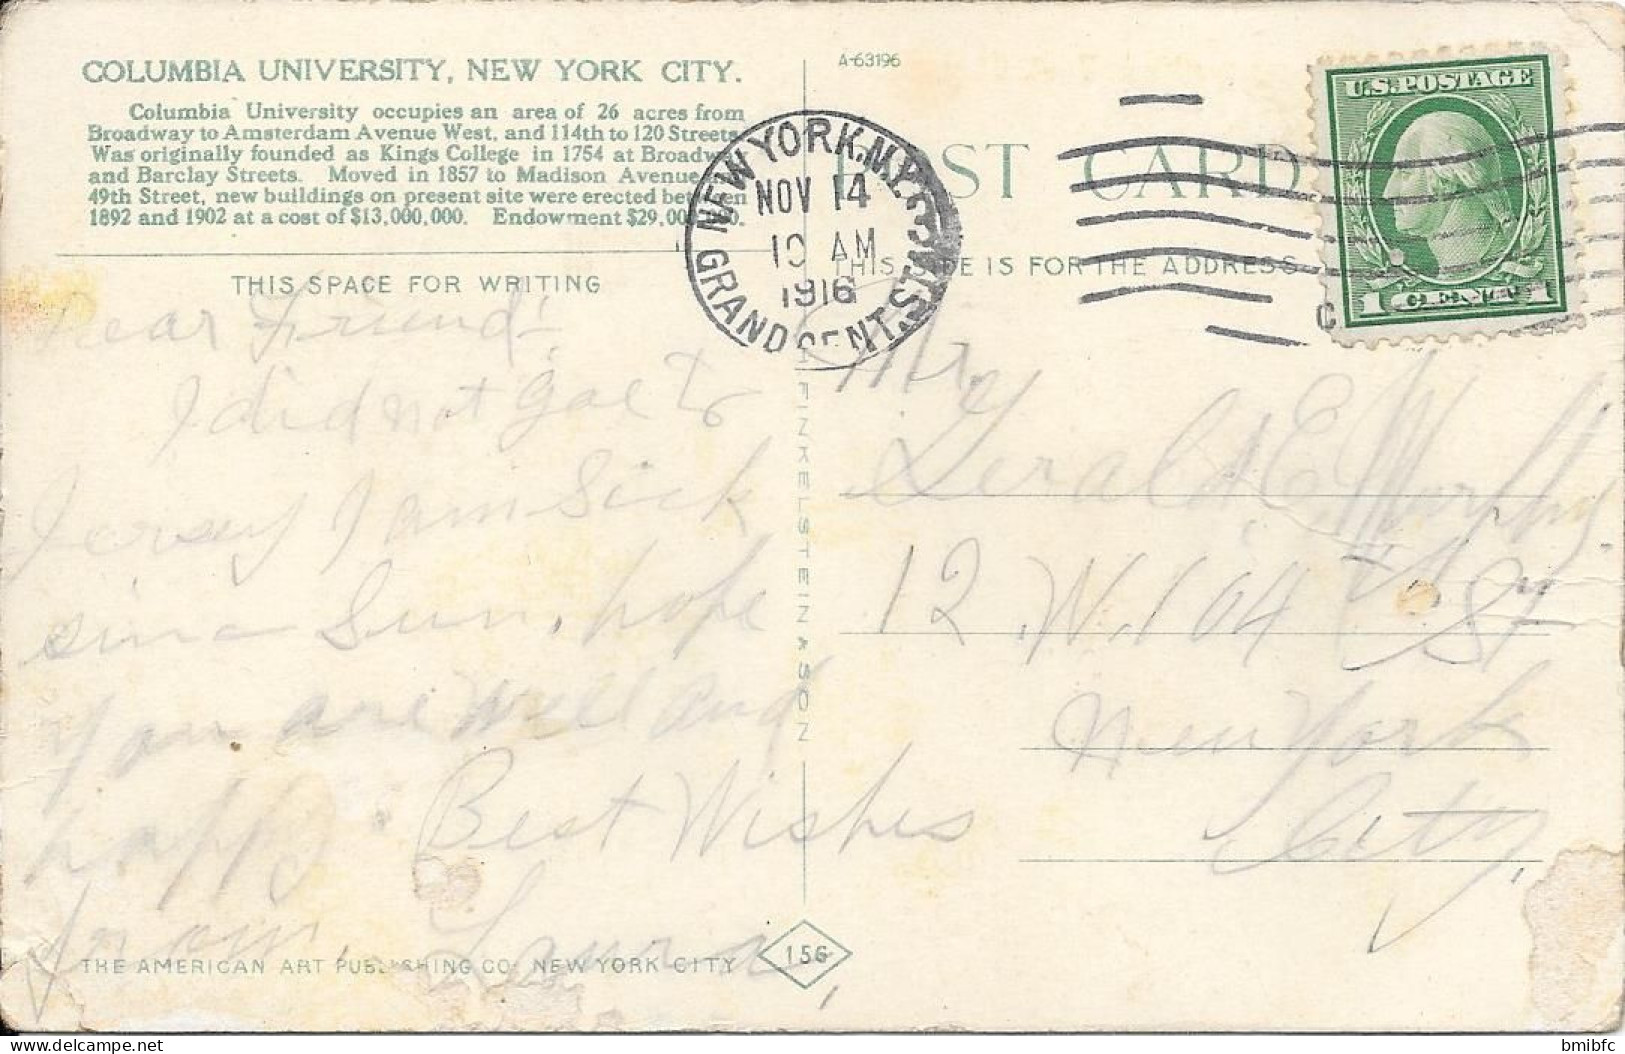 COLUMBIA UNIVERSITY, NEW YORK CITY.
Columbia University occupies an area of 26 acres from
Broadway to Amsterdam Avenue West, and 114th to 120 Streets.
Was originally founded as Kings College in 1754 at Broadw
and Barclay Streets. Moved in 1857 to Madison Avenue
49th Street, new buildings on present site were erected between
1892 and 1902 at a cost of $13,000,000. Endowment $29,00
THIS SPACE FOR WRITING
Dear Friend:
I did not goe to
Jersey I am Sick
sinc Sun, hope
you are well and
happy Best Wishes
from Laura,
THE AMERICAN ART PUBLISHING CO. NEW YORK CITY
156
H. FINKELSTEIN & SON
A-63196
POST CARD
THIS SIDE IS FOR THE ADDRESS
NEW YORK, N.Y.
NOV 14
10 AM
1916
GRAND CENT. STA.
U.S. POSTAGE
1 CENT 1
Mr.
Gerald E. Murphy
12 W. 104 St
New York
City,
bmibfc